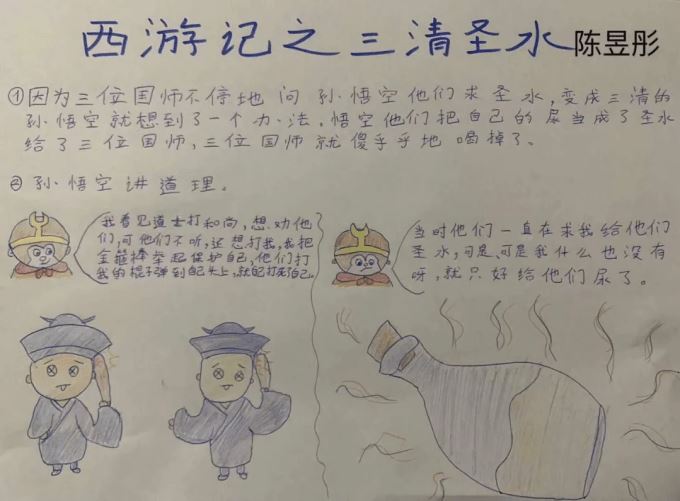 西游记之三清圣水 陈昱彤
①因为三位国师不停地问孙悟空他们求圣水,变成三清的
孙悟空就想到了一个办法。悟空他们把自己的尿当成了圣水
给了三位国师,三位国师就傻乎乎地喝掉了。
②孙悟空讲道理。
我看见道士打和尚,想劝他
们,可他们不听,还想打我,我把
金箍棒举起保护自己,他们打
我的棍子弹到自己头上,就自己打死了自己。
当时他们一直在求我给他们
圣水,可是,可是我什么也没有
呀,就只好给他们尿了。